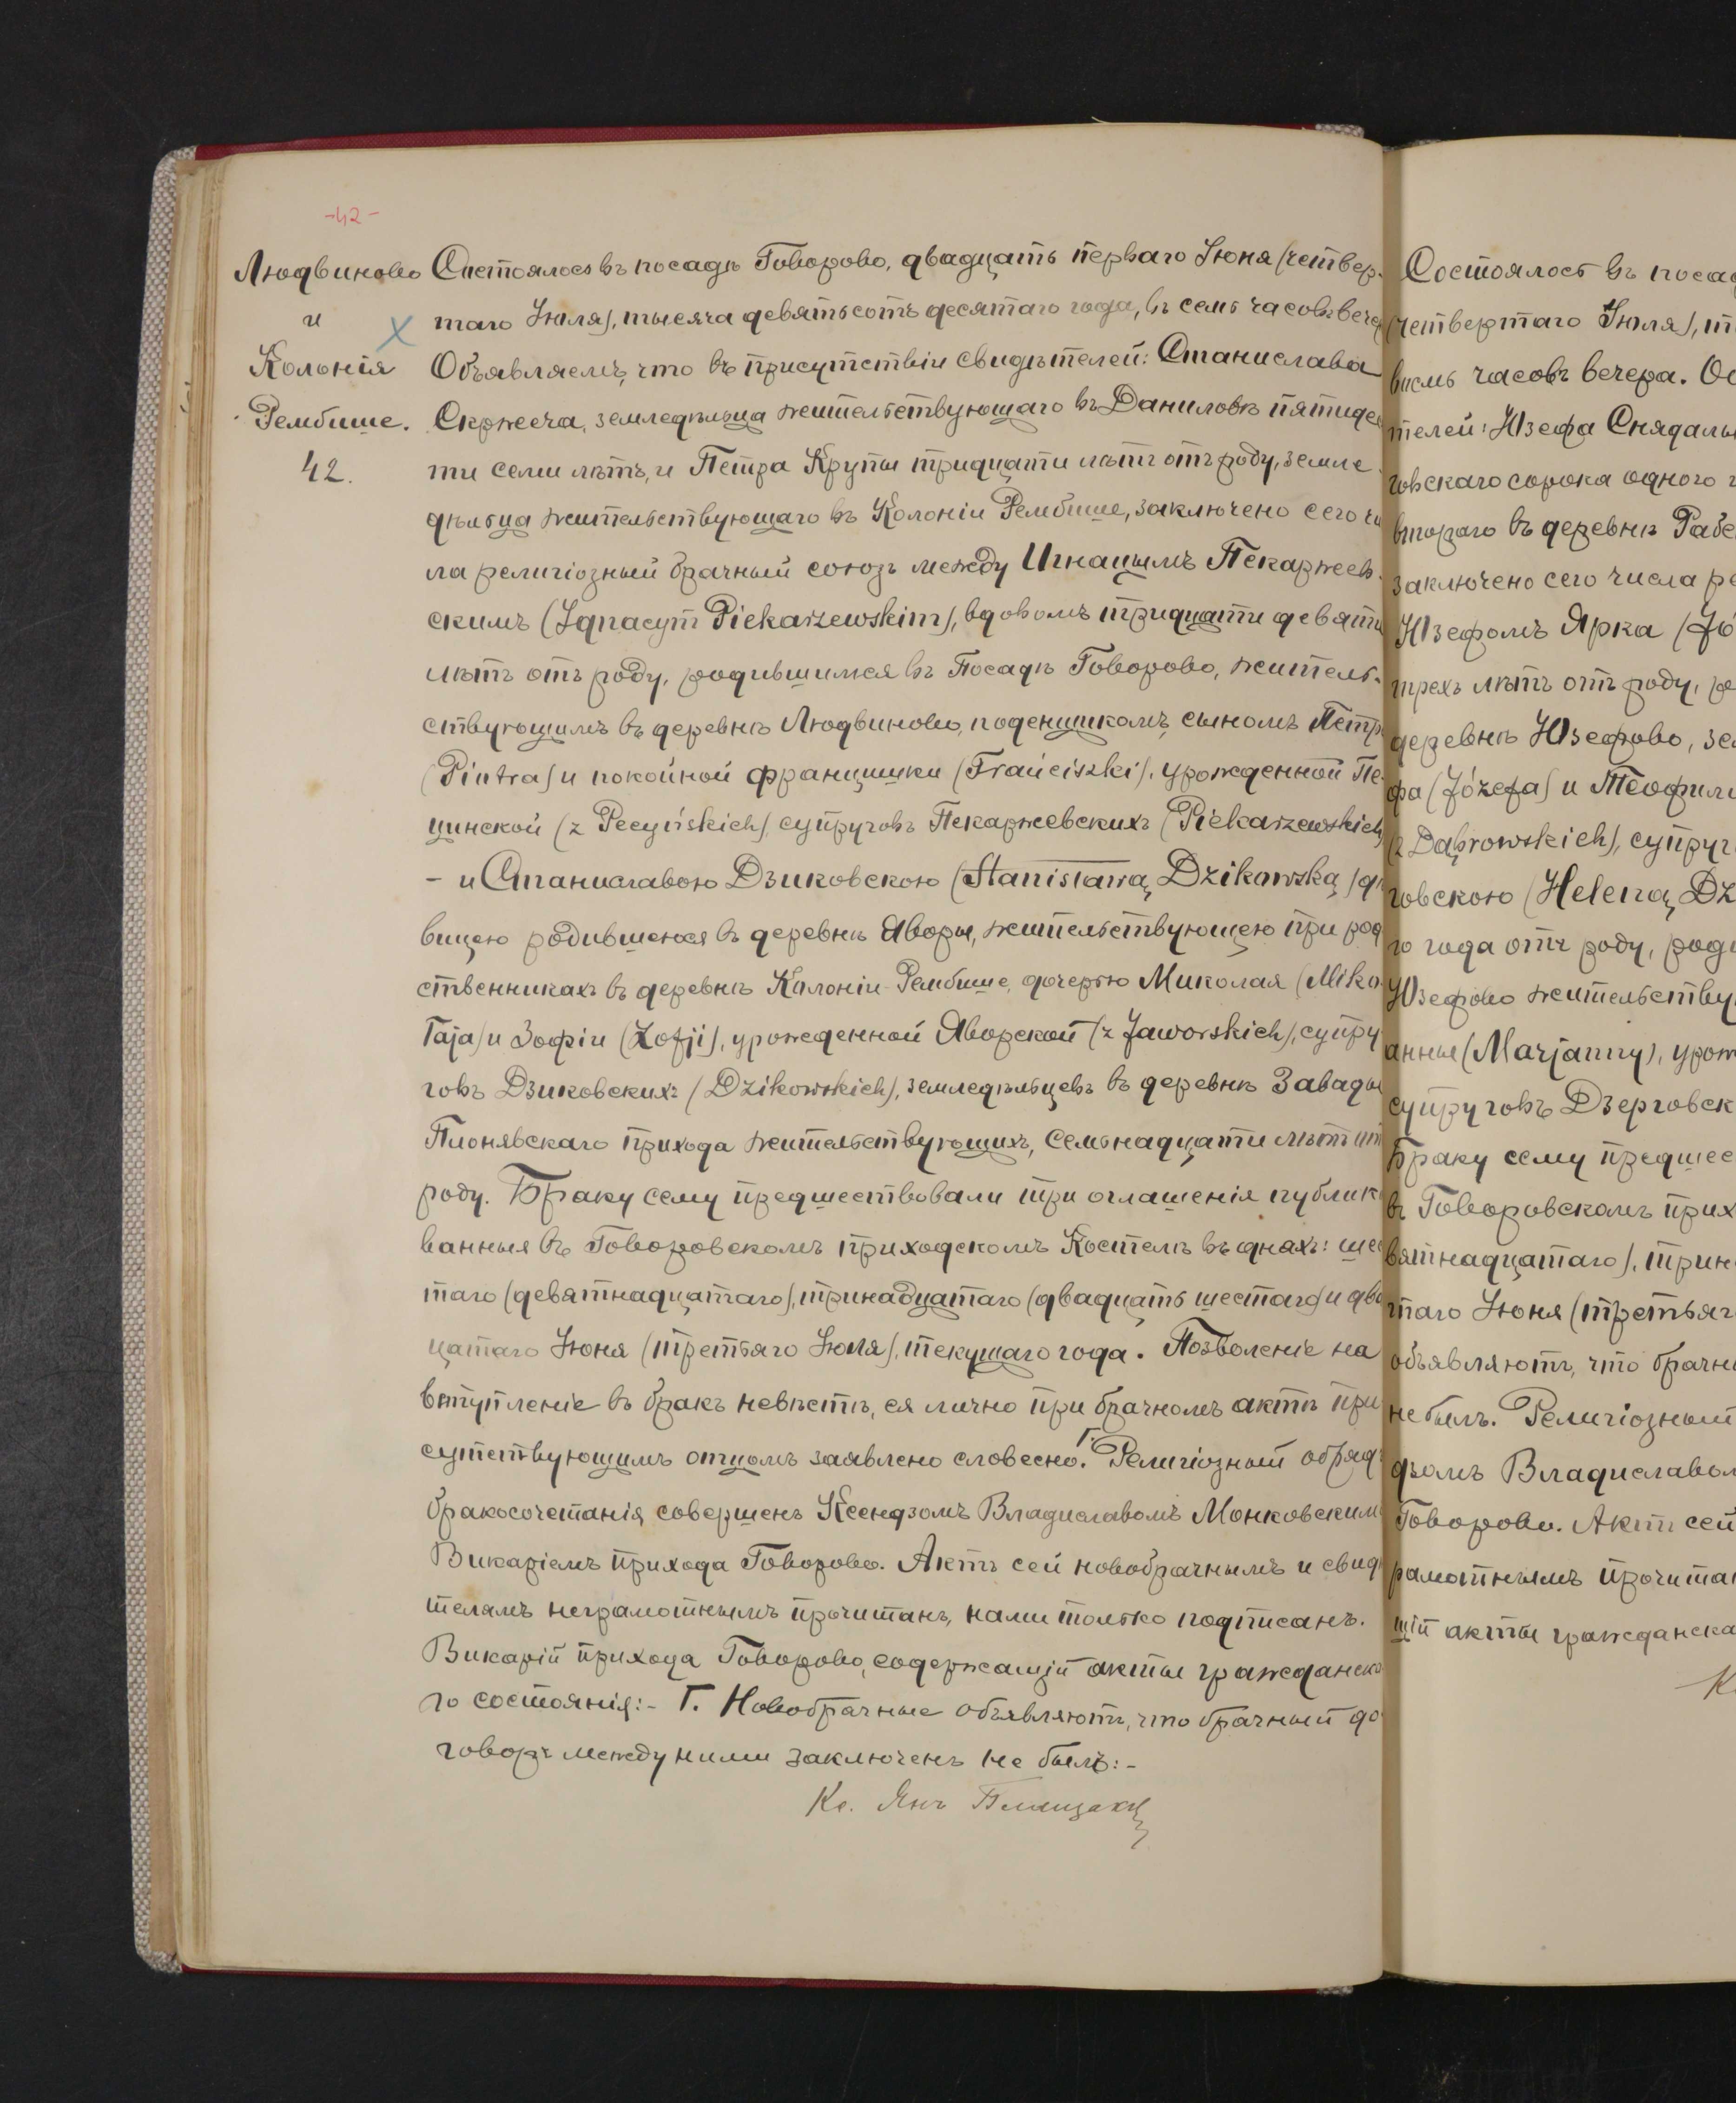 -42-
Людвиново
и
Колонія
Рембише.
42.
Состоялось въ посадѣ Говорово, двадцать перваго Іюня (четвер-
таго Іюля), тысяча девятьсотъ десятаго года, въ семь часовъ вечера
Объявляемъ, что въ присутствіи свидѣтелей: Станислава
Скржеча, земледѣльца жительствующаго въ Даниловѣ пятидеся
ти семи лѣтъ, и Петра Крупы тридцати лѣтъ отъ роду, земле
дѣльца жительствующаго въ Колоніи Рембише, заключено сего чи
ла религіозный брачный союзъ между Игнацымъ Пекаржев-
скимъ (Ignacym Piekarzewskim), вдовомъ тридцати девяти
лѣтъ отъ роду, родившимся въ Посадѣ Говорово, житель-
ствующимъ въ деревнѣ Людвиново, поденщикомъ, сыномъ Петра
(Piotra) и покойной францишки (Franciszki), урожденной Пе
цинской (z Pecyńskich) супруговъ Пекаржевскихъ (Piekarzewskich)
- и Станиславою Дзиковскою (Stanisławą Dzikowską) дѣ
вицею родившеюся въ деревнѣ Яворы, жительствующею при род
ственникахъ въ деревнѣ Колоніи-Рембише, дочерью Миколая (Miko
łaja) и Зофіи (Zofji), урожденной Яворской (z Jaworskich), супру
говъ Дзиковскихъ (Dzikowskich), земледѣльцевъ въ деревнѣ Завады
Піонявскаго прихода жительствующихъ, семьнадцати лѣтъ отъ
роду. Браку сему предшествовали три оглашенія публико
ванныя въ Говоровскомъ приходскомъ Костелѣ въ дняхъ: шес
таго (девятнадцатаго), тринадцатаго (двадцать шестаго) и двад
цатаго Іюня (третьяго Іюля), текущаго года. Позволеніе на
вступленіе въ бракъ невѣстѣ, ея лично при брачномъ актѣ при
сутствующимъ отцомъ заявлено словесно. Г. Религіозный обрядъ
бракосочетанія совершенъ Ксендзомъ Владиславомъ Монковскимъ
Викаріемъ прихода Говорово. Актъ сей новобрачнымъ и свидѣ
телямъ неграмотнымъ прочитанъ, нами только подписанъ.
Викарій прихода Говорово, содержащій акты гражданска
го состоянія:- Г. Новобрачные объявляютъ, что брачный до
говоръ между ними заключенъ не былъ:-
Кс. Янъ
Состоялось въ посад
(четвертаго Іюля), т
восмь часовъ вечера. Об
телей: Юзефа Снядалы
говскаго сорока одного г
втораго въ деревнѣ Рабе
заключено сего числа ре
Юзефомъ Ярка (Jó
трехъ лѣтъ отъ роду, ро
деревнѣ Юзефово, зе
фа (Józefa) и Теофили
(z Dąbrowskich), супруг
говскою (Heleną Dz
го года отъ роду, роди
Юзефово жительству
анны (Marjanny), урож
супруговъ Дзерговск
Браку сему предшес
въ Говоровскомъ прих
вятнадцатаго), трин
таго Іюня (третьяг
объявляютъ, что брачн
не былъ. Религіозный
дзомъ Владиславом
Говорово. Актъ сей
рамотнымъ прочитан
щій акты гражданска
К